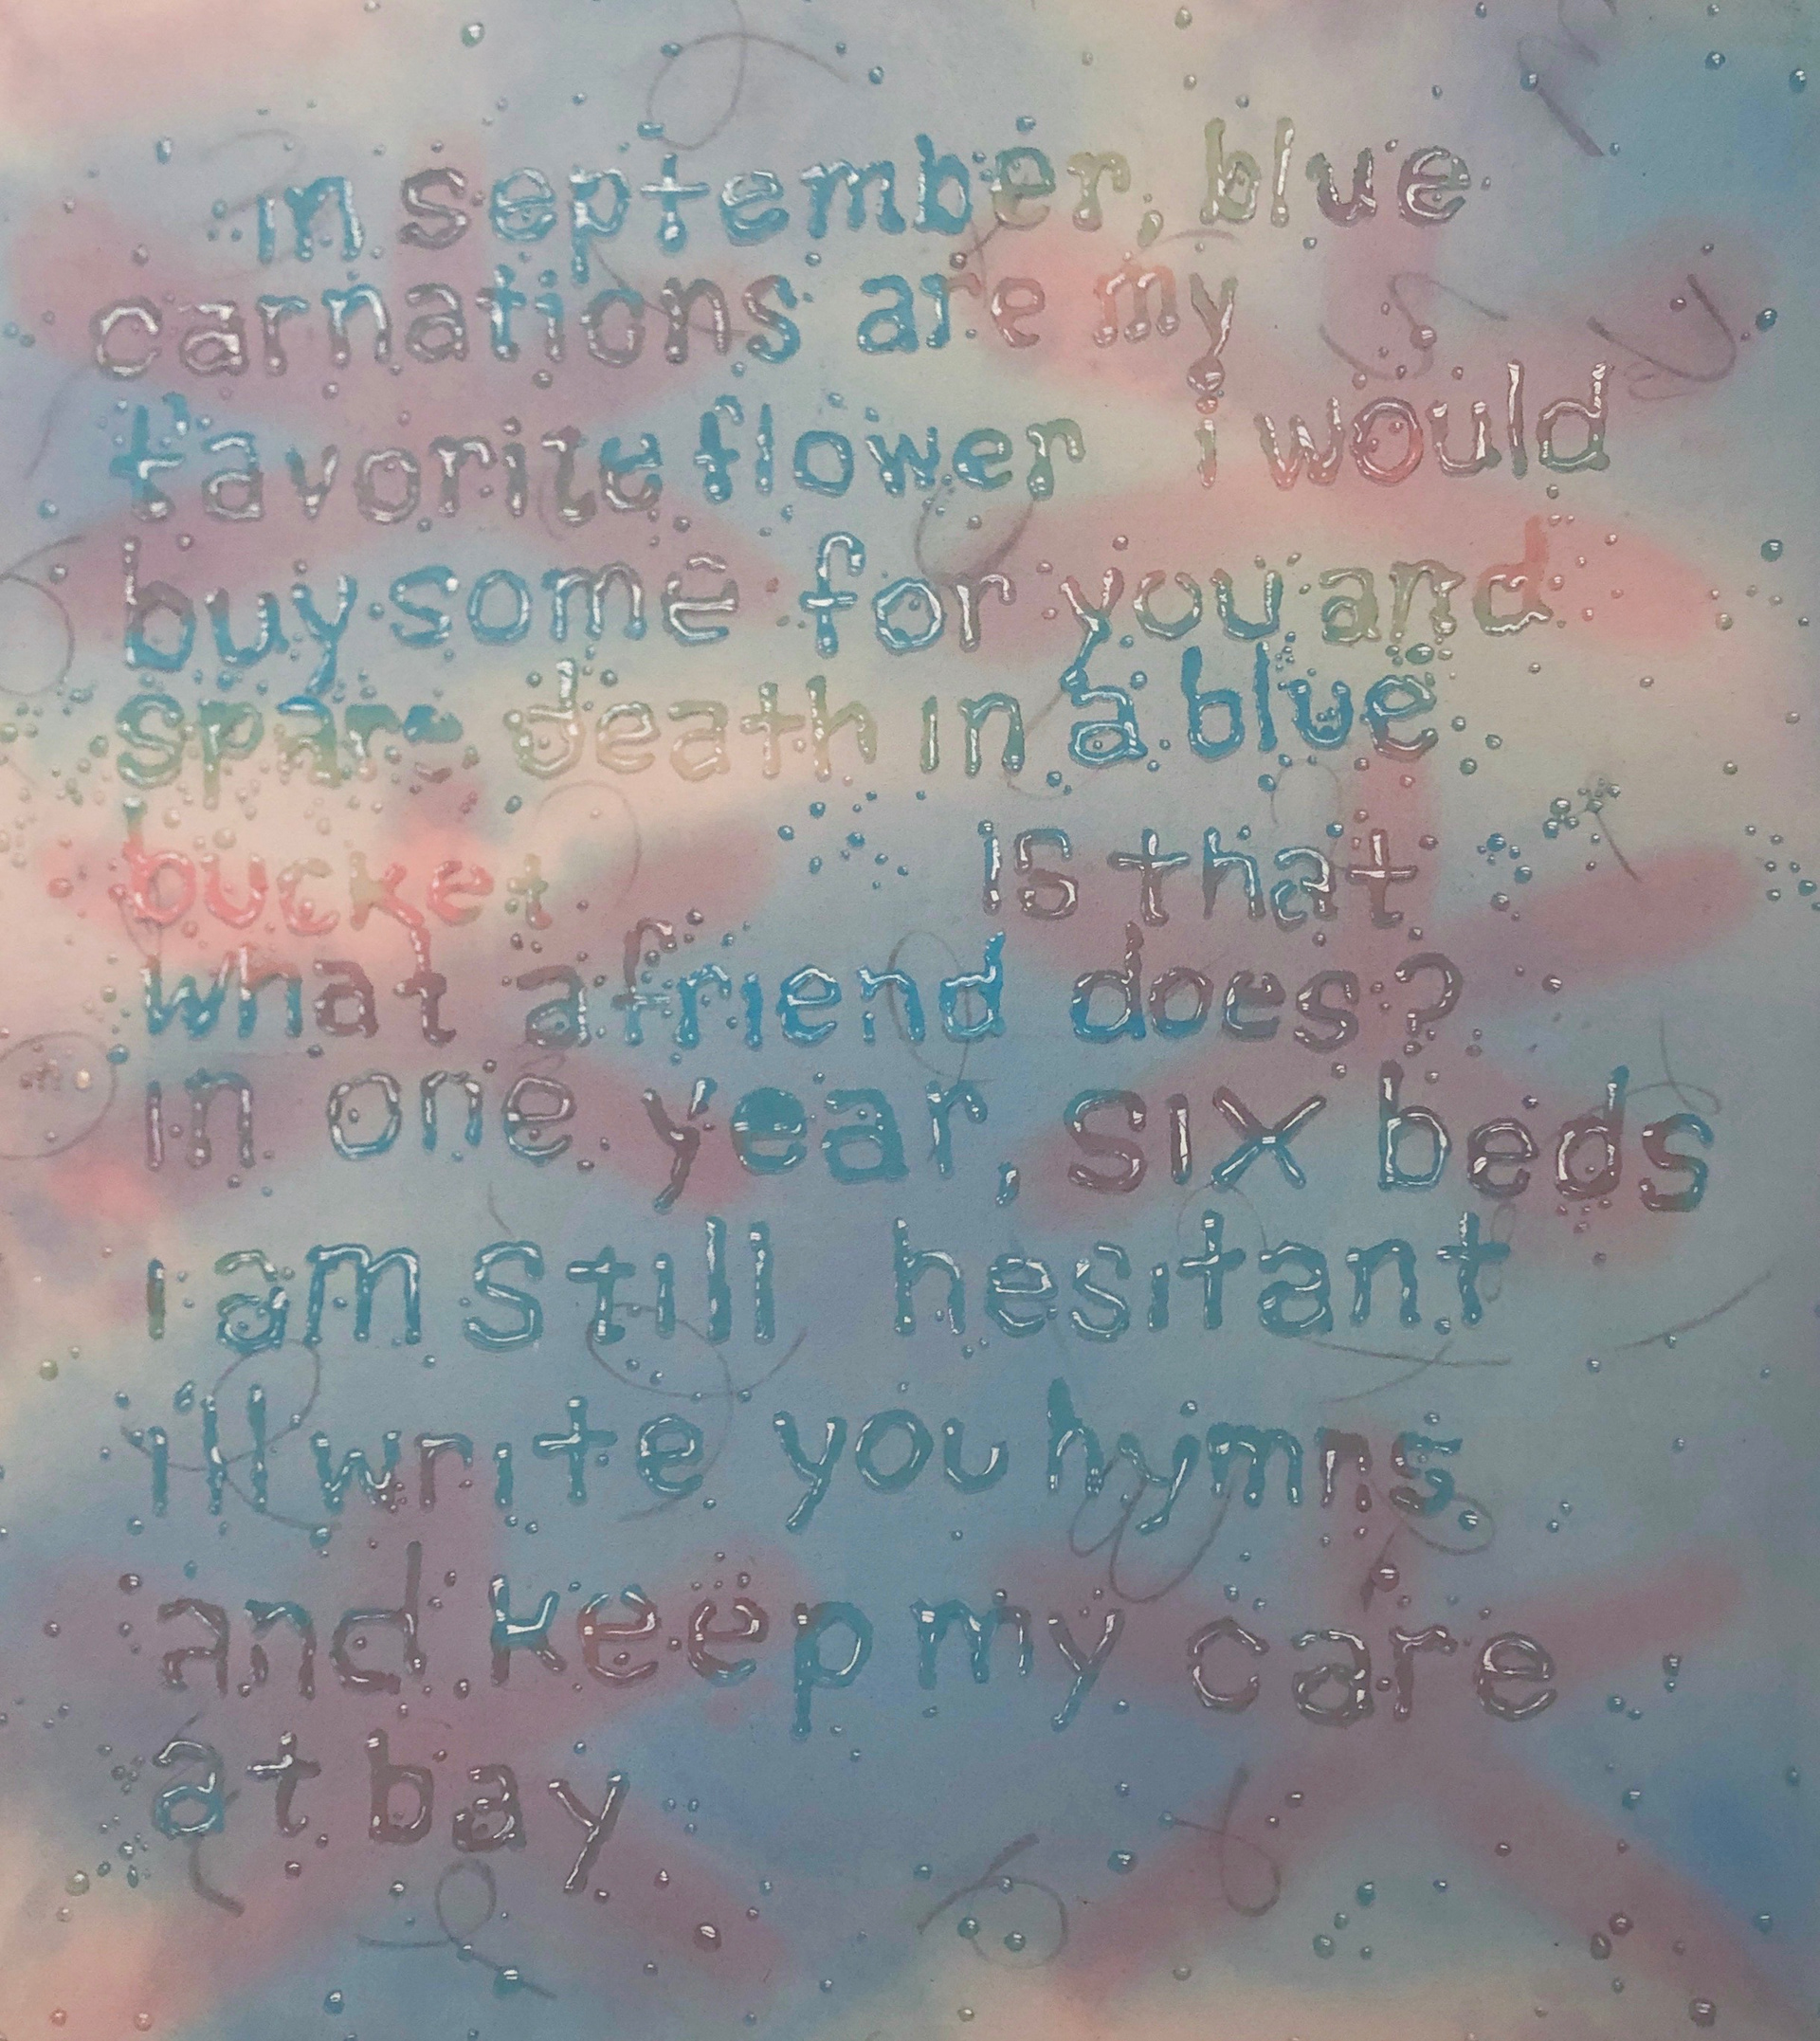 in september, blue
carnations are my
favorite flower i would
buy some for you and
spare death in a blue
bucket is that
what a friend does?
in one year, six beds
i am still hesitant
i'll write you hymns
and keep my care
at bay